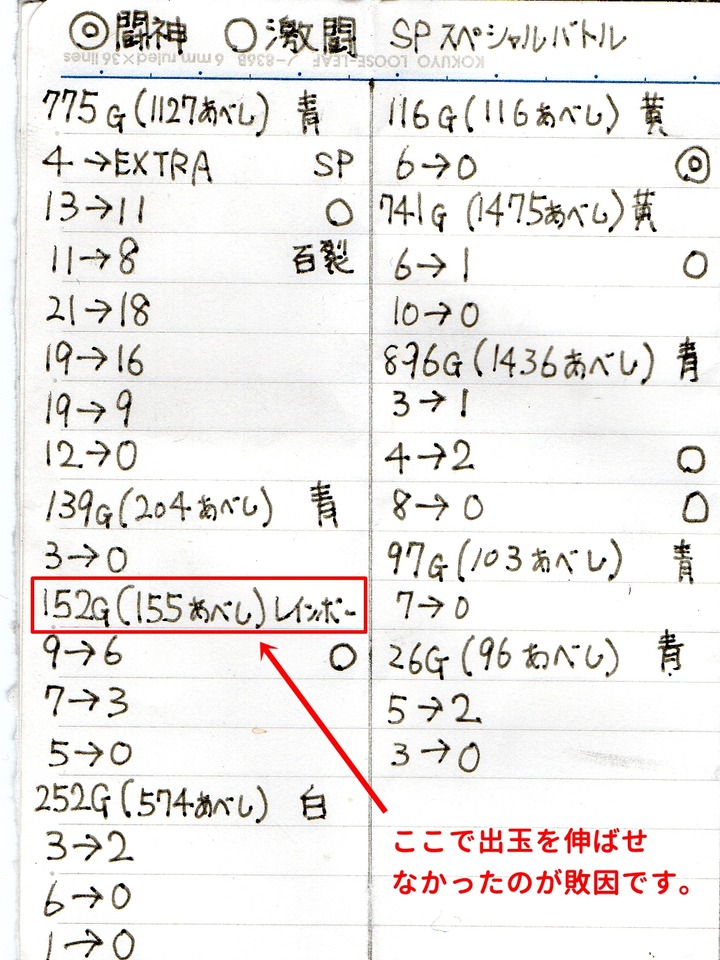 ◎闘神 ○激闘 SPスペシャルバトル
KOKUYO LOOSE-LEAF ノ-836B 6mm ruled×36 lines
775G(1127あべし) 青
4→EXTRA SP
13→11 ○
11→8 百裂
21→18
19→16
19→9
12→0
139G(204あべし) 青
3→0
152G(155あべし)レインボー
9→6 ○
7→3
5→0
252G(574あべし) 白
3→2
6→0
1→0
116G(116あべし) 黄
6→0 ◎
741G(1475あべし)黄
6→1 ○
10→0
896G(1436あべし) 青
3→1
4→2 ○
8→0 ○
97G(103あべし) 青
7→0
26G(96あべし) 青
5→2
3→0
ここで出玉を伸ばせ
なかったのが敗因です。